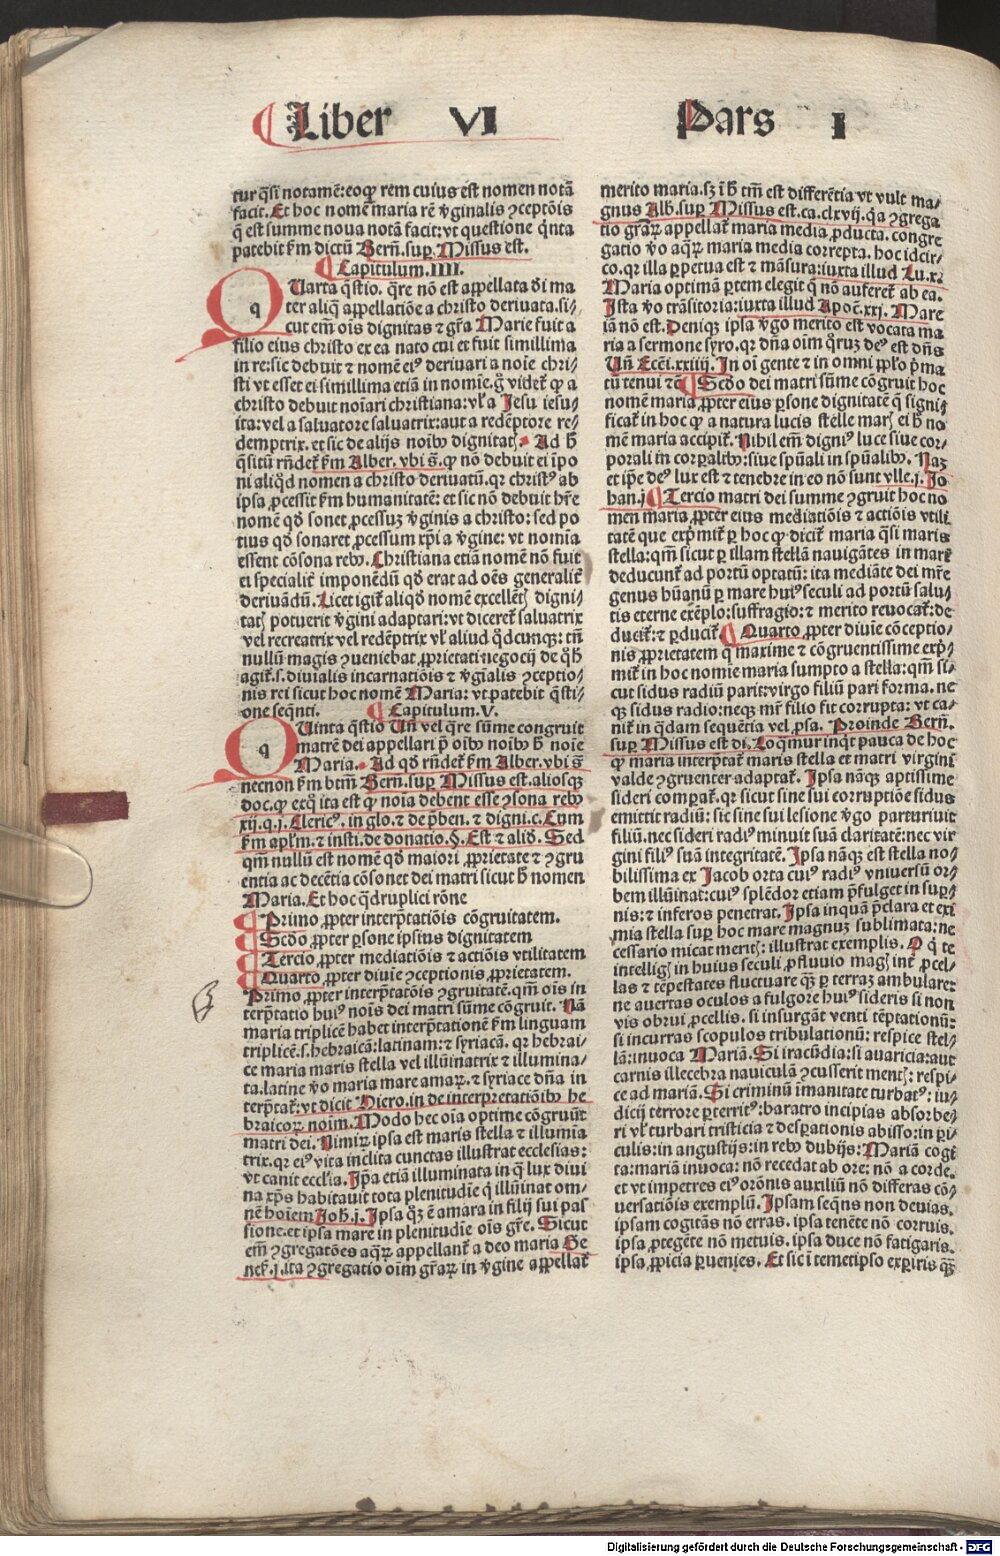 Liber VI Pars I
tur q̄si notamē: eoq̄ rem cuius est nomen notā
facit. Et hoc nomē maria rē v̄ginalis ꝯceptōis
q̄ est summe noua notā facit: vt questione q̄nta
patebit ẜm dictū Bern̄. suꝑ Missus est.
Capitulum. IIII.
QUarta q̄stio. q̄re nō est appellata d̄i ma
ter aliq̄ appellatiōe a christo deriuata. si⸗
cut em̄ oīs dignitas ⁊ gr̄a Marie fuit a
filio eius christo ex ea nato cui et fuit simillima
in re: sic debuit ⁊ nomē eiꝰ deriuari a noīe chri⸗
sti vt esset ei simillima etiā in nomīe. g̊ videt̄ ꝙ a
christo debuit noīari christiana: vl̓ a Jesu iesu⸗
ita: vel a saluatore saluatrix: aut a redēptore re⸗
demptrix. et sic de alijs noībꝰ dignitatꝭ. Ad h̄
q̄sitū rn̄det̄ ẜm Alber. vbi s̄. ꝙ nō debuit ei īpo
ni aliqd̄ nomen a christo deriuatū. qr christꝰ ab
ipsa ꝓcessit ẜm humanitatē: et sic nō debuit hr̄e
nomē qd̄ sonet ꝓcessuꝫ v̄ginis a christo: sed po
tius qd̄ sonaret ꝓcessum xp̄i a v̄gine: vt nomīa
essent cōsona rebꝰ. Christiana etiā nomē nō fuit
ei specialit̄ imponēdū qd̄ erat ad oēs generalit̄
deriuādū. Licet igit̄ aliqd̄ nomē excellētꝭ digni⸗
tatꝭ potuerit v̄gini adaptari: vt diceret̄ saluatrix
vel recreatrix vel redēptrix vl̓ aliud qd̄cunqꝫ: tn̄
nullū magis ꝯueniebat ꝓprietati negocij de q̊ h̄
agit̄. s. diuialis incarnatiōis ⁊ v̄gialis ꝯceptio⸗
nis rei sicut hoc nomē Maria: vt patebit q̄sti⸗
one seq̄nti. Capitulum. V.
QUinta q̄stio Un̄ vel q̄re sūme congruit
matrē dei appellari p̄ oībꝰ noībꝰ h̄ noīe
Maria. Ad qd̄ rn̄det̄ ẜm Alber. vbi s̄
necnon ẜm btm̄ Bern̄. suꝑ Missus est. aliosqꝫ
doc. ꝙ exq̊ ita est ꝙ noīa debent esse ꝯsona rebꝰ
xij. q. j. Clericꝰ. in glo. ⁊ de p̄ben. ⁊ digni. c. Cum
ẜm apl̓m. ⁊ insti. de donatio. §. Est ⁊ aliđ. Sed
qm̄ nullū est nomē qd̄ maiori ꝓprietate ⁊ ꝯgru
entia ac decētia cōsonet dei matri sicut h̄ nomen
Maria. Et hoc q̄druplici rōne
Primo ꝓpter interp̄tatiōis cōgruitatem.
Scd̄o ꝓpter ꝑsone ipsius dignitatem
Tercio ꝓpter mediatiōis ⁊ actiōis vtilitatem
Quarto ꝓpter diuīe ꝯceptionis ꝓprietatem.
Primo ꝓpter interp̄tatōis ꝯgruitatē. qm̄ oīs in
terp̄tatio huiꝰ noīs dei matri sūme cōgruit. Nā
maria triplicē habet interp̄tationē ẜm linguam
triplicē. s. hebraicā: latinam: ⁊ syriacā. qr hebrai⸗
ce maria maris stella vel illūinatrix ⁊ illumina⸗
ta. latine v̄o maria mare amaꝝ. ⁊ syriace dn̄a in
terp̄tat̄: vt dicit Hiero. in de interpretatiōibꝰ he
braicoꝝ noīm. Modo hec oīa optime cōgruūt
matri dei. Nimiꝝ ipsa est maris stella ⁊ illumīa
trix. qr eiꝰ vita inclita cunctas illustrat ecclesias:
vt canit eccl̓ia. Ip̄a etiā illuminata in q̄ lux diui
na xp̄s habitauit tota plenitudīe q̄ illūinat om⸗
nē hoīem Joh̄. j. Ipsa q̊ꝫ ē amara in filij sui pas
sione. et ipsa mare in plenitudīe oīs gr̄e. Sicut
em̄ ꝯgregatōes aq̄ꝝ appellant̄ a deo maria Ge
nes̄. j. ita ꝯgregatio oīm gr̄aꝝ in v̄gine appellat̄
merito maria. sꝫ ī h̄ tm̄ est differētia vt vult ma⸗
gnus Alb. suꝑ Missus est. ca. clxvij. q̄a ꝯgrega
tio gr̄aꝝ appellat̄ maria media ꝓducta. congre
gatio v̄o aq̄ꝝ maria media correpta. hoc idcir⸗
co. qr illa ꝑpetua est ⁊ māsura: iuxta illud Lu. x.
Maria optimā ꝑtem elegit q̄ nō auferet̄ ab ea.
Ista v̄o trāsitoria: iuxta illud Apoc̄. xxj. Mare
iā nō est. Deniqꝫ ipsa v̄go merito est vocata ma
ria a sermone syro. qr dn̄a oīm q̊ruꝫ deꝰ est dn̄s
Un̄ Ecc̄i. xxiiij. In oī gente ⁊ in omni pp̄lo p̄ma
tū tenui ⁊c̄. Scd̄o dei matri sūme cōgruit hoc
nomē maria ꝓpter eius ꝑsone dignitatē q̄ signi
ficat̄ in hoc ꝙ a natura lucis stelle marꝭ ei h̄ no
mē maria accipit̄. Nihil em̄ digniꝰ luce siue cor⸗
porali in corꝑalibꝰ: siue spūali in spūalibꝰ. Naꝫ
et ip̄e deꝰ lux est ⁊ tenebre in eo nō sunt vlle. j. Jo
han. j. Tercio matri dei summe ꝯgruit hoc no
men maria ꝓpter eius mediatiōis ⁊ actiōis vtili
tatē que exp̄mit̄ ꝑ hoc ꝙ dicit̄ maria q̄si maris
stella: qm̄ sicut ꝑ illam stellā nauigātes in mari
deducunt̄ ad portū optatū: ita mediāte dei mr̄e
genus hūanū ꝑ mare huiꝰ seculi ad portū salu⸗
tis eterne exēplo: suffragio: ⁊ merito reuocat̄: de
ducit̄: ⁊ ꝑducit̄. Quarto ꝓpter diuīe cōceptio⸗
nis ꝓprietatem q̄ maxime ⁊ cōgruentissime exp̄
mit̄ in hoc nomīe maria sumpto a stella: qm̄ si⸗
cut sidus radiū parit: virgo filiū pari forma. ne
qꝫ sidus radio: neqꝫ mr̄ filio fit corrupta: vt ca⸗
nit̄ in q̄dam sequētia vel ꝓsa. Proinde Bern̄.
suꝑ Missus est di. Loq̄mur inq̄t pauca de hoc
ꝙ maria interp̄tat̄ maris stella et matri virgini
valde ꝯgruenter adaptat̄. Ipsa nāqꝫ aptissime
sideri comꝑat̄. qr sicut sine sui corruptiōe sidus
emittit radiū: sic sine sui lesione v̄go parturiuit
filiū. nec sideri radiꝰ minuit suā claritatē: nec vir
gini filiꝰ suā integritatē. Ipsa nāqꝫ est stella no⸗
bilissima ex Jacob orta cuiꝰ radiꝰ vniuersū or⸗
bem illūinat: cuiꝰ splēdor etiam p̄fulget in suꝑ⸗
nis: ⁊ inferos penetrat. Ipsa inquā p̄clara et exi
mia stella suꝑ hoc mare magnuꝫ sublimata: ne
cessario micat meritꝭ: illustrat exemplis. O q̄ te
intelligꝭ in huius seculi ꝓfluuio magꝭ int̄ ꝓcel⸗
las ⁊ tēpestates fluctuare q̄ꝫ ꝑ terraꝫ ambulare:
ne auertas oculos a fulgore huiꝰ sideris si non
vis obrui ꝓcellis. si insurgāt venti tēptationū:
si incurras scopulos tribulationū: respice stel⸗
lā: inuoca Mariā. Si iracūdia: si auaricia: aut
carnis illecebra nauiculā ꝯcusserit mentꝭ: respi⸗
ce ad mariā. Si criminū īmanitate turbatꝰ: iu⸗
dicij terrore ꝑterritꝰ: baratro incipias absorbe⸗
ri vl̓ turbari tristicia ⁊ desꝑationis abisso: in ꝑi⸗
culis: in angustijs: in rebꝰ dubijs: Mariā cogi
ta: mariā inuoca: nō recedat ab ore: nō a corde.
et vt impetres eiꝰ orōnis auxiliū nō differas cō⸗
uersatiōis exemplū. Ipsam seq̄ns non deuias.
ipsam cogitās nō erras. ipsa tenēte nō corruis.
ipsa ꝓtegēte nō metuis. ipsa duce nō fatigaris.
ipsa ꝓpicia ꝑuenies. Et sic ī temetipso exꝑiris q̄ꝫ
Digitalisierung gefördert durch die Deutsche Forschungsgemeinschaft - DFG